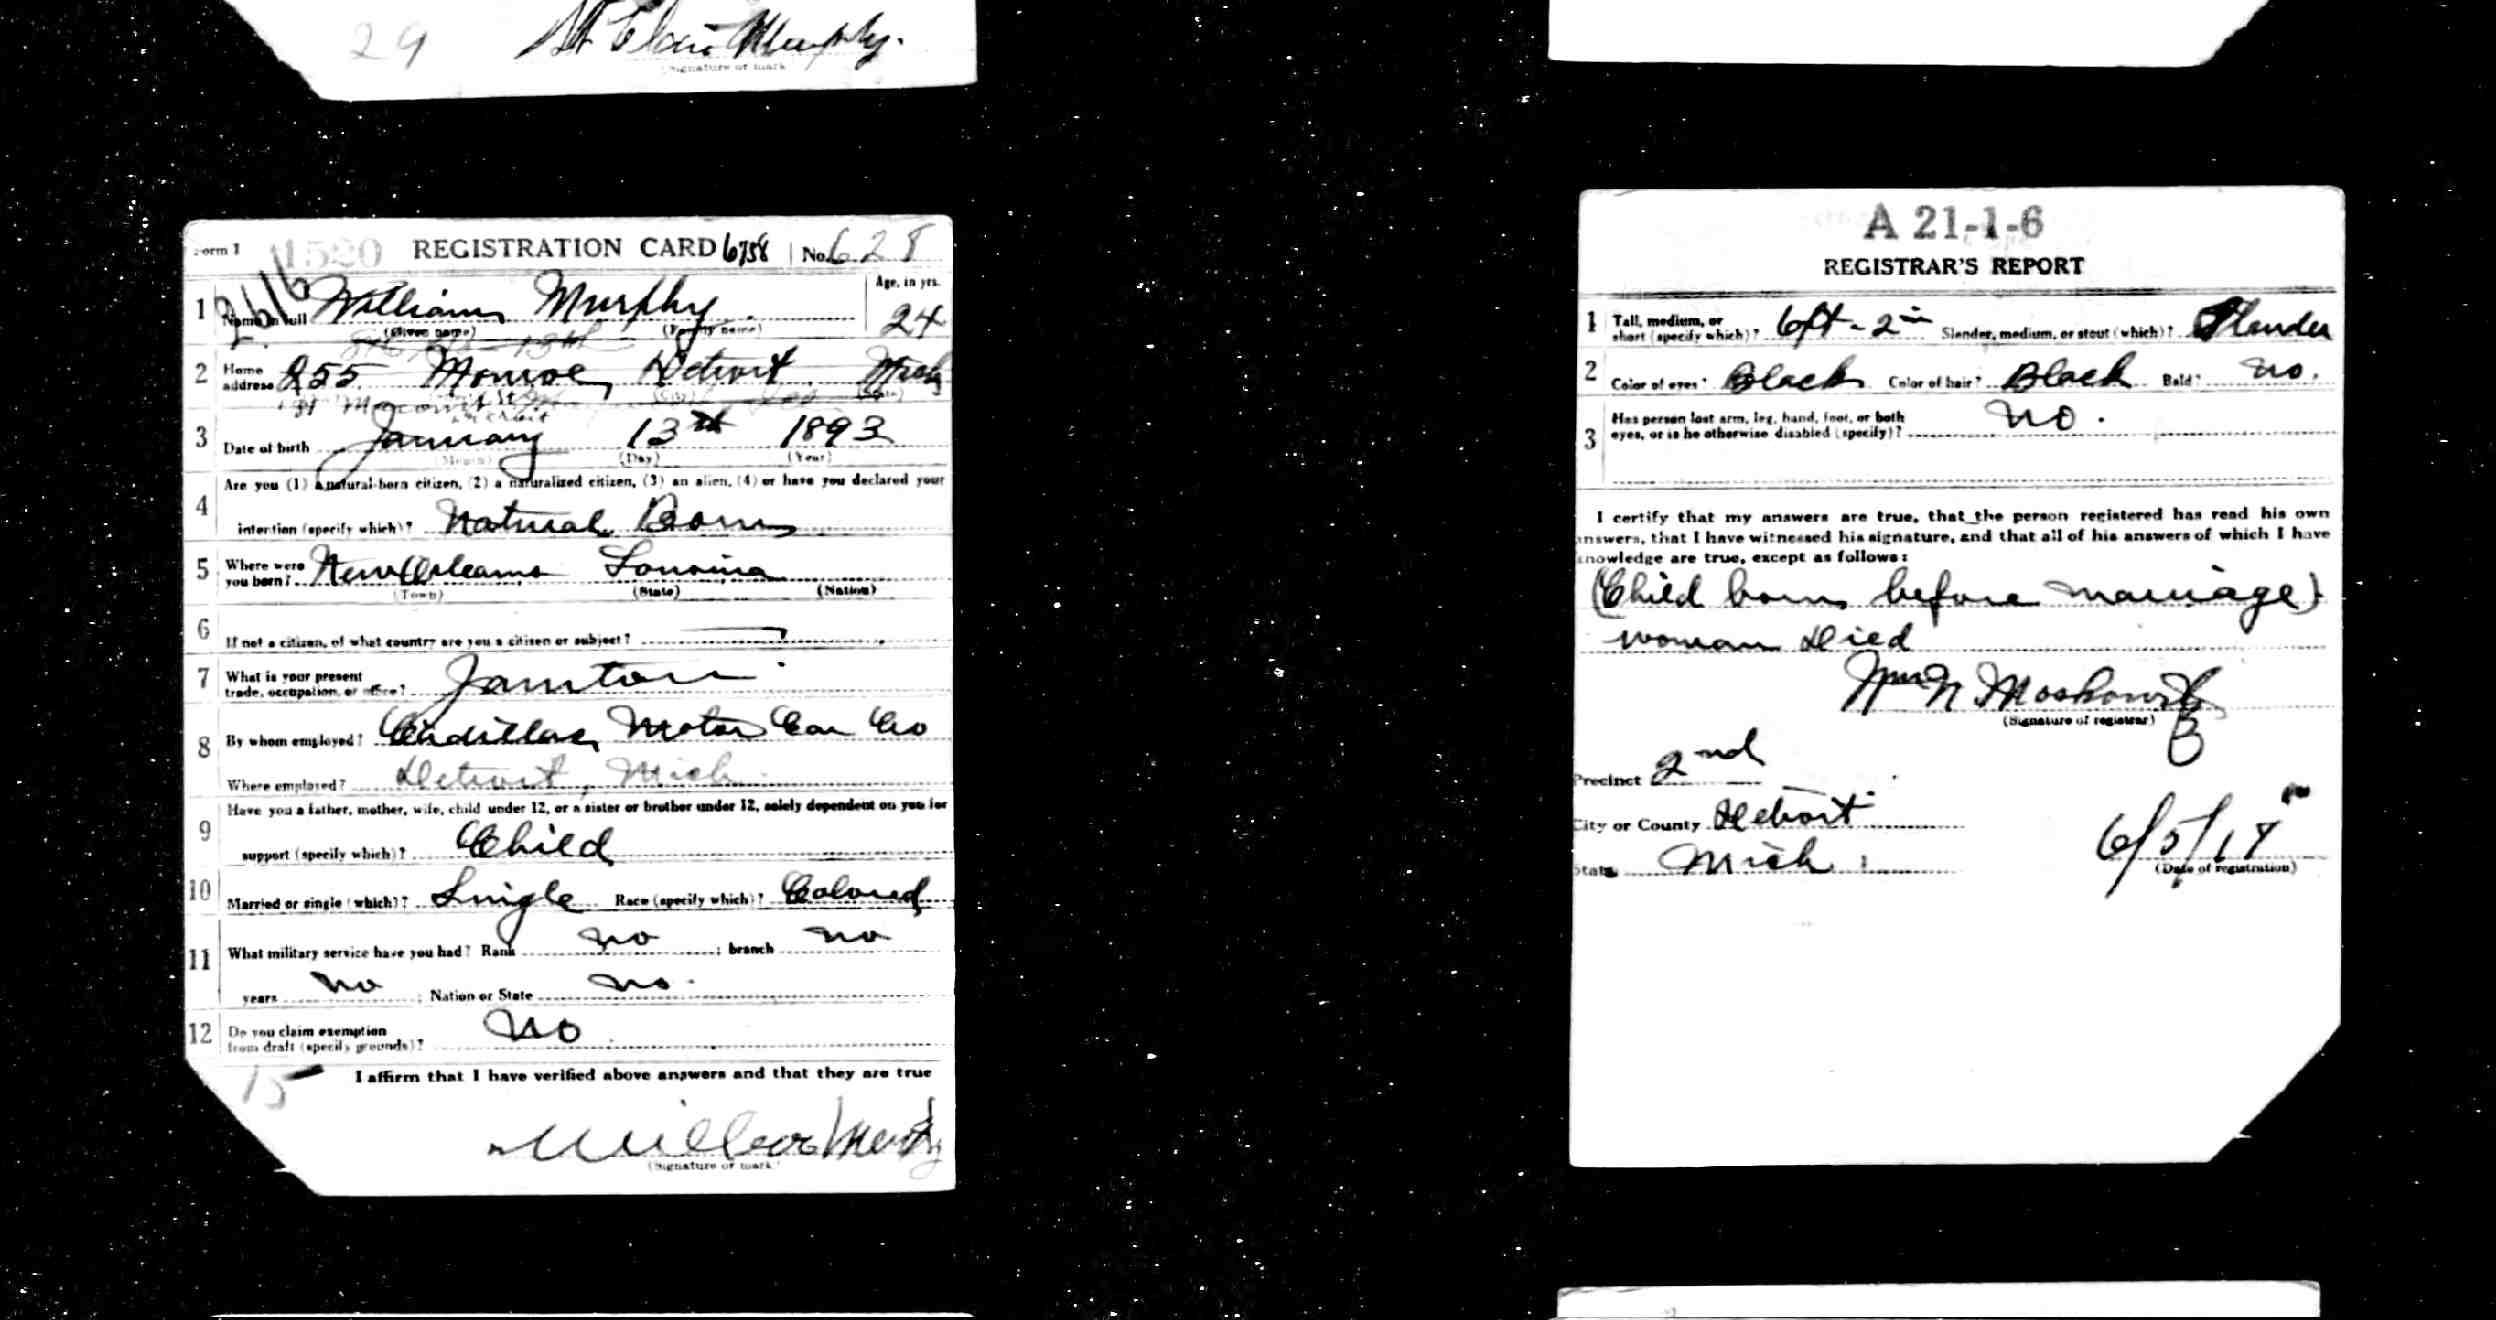 29 St Clair Murphy.
(Signature or mark)
Form 1 1520 REGISTRATION CARD 6758 No. 628
1 Name in full William Murphy. Age, in yrs. 24
(Given name) (Family name)
15th
2 Home address 255 Monroe, Detroit Mich
3 Date of birth January 13th 1893
(Month) (Day) (Year)
4 Are you (1) a natural-born citizen, (2) a naturalized citizen, (3) an alien, (4) or have you declared your
intention (specify which)? Natural Born
5 Where were you born? New Orleans Lousina
(Town) (State) (Nation)
6 If not a citizen, of what country are you a citizen or subject?
7 What is your present trade, occupation, or office? Janitor
8 By whom employed? Cadillac Motor Car Co
Where employed? Detroit, Mich
9 Have you a father, mother, wife, child under 12, or a sister or brother under 12, solely dependent on you for
support (specify which)? Child
10 Married or single (which)? Single Race (specify which)? Colored
11 What military service have you had? Rank no ; branch no
years no ; Nation or State no.
12 Do you claim exemption from draft (specify grounds)? No
15 I affirm that I have verified above answers and that they are true
(Signature or mark)
A 21-1-6
REGISTRAR'S REPORT
1 Tall, medium, or short (specify which)? 6ft-2in Slender, medium, or stout (which)? Slender
2 Color of eyes? Black Color of hair? Black Bald? No.
3 Has person lost arm, leg, hand, foot, or both
eyes, or is he otherwise disabled (specify)? No.
I certify that my answers are true, that the person registered has read his own
answers, that I have witnessed his signature, and that all of his answers of which I have
knowledge are true, except as follows:
(Child born before marriage)
woman Died
Wm N Moskowitz
(Signature of registrar)
Precinct 2nd
City or County Detroit
State Mich
6/5/17
(Date of registration)